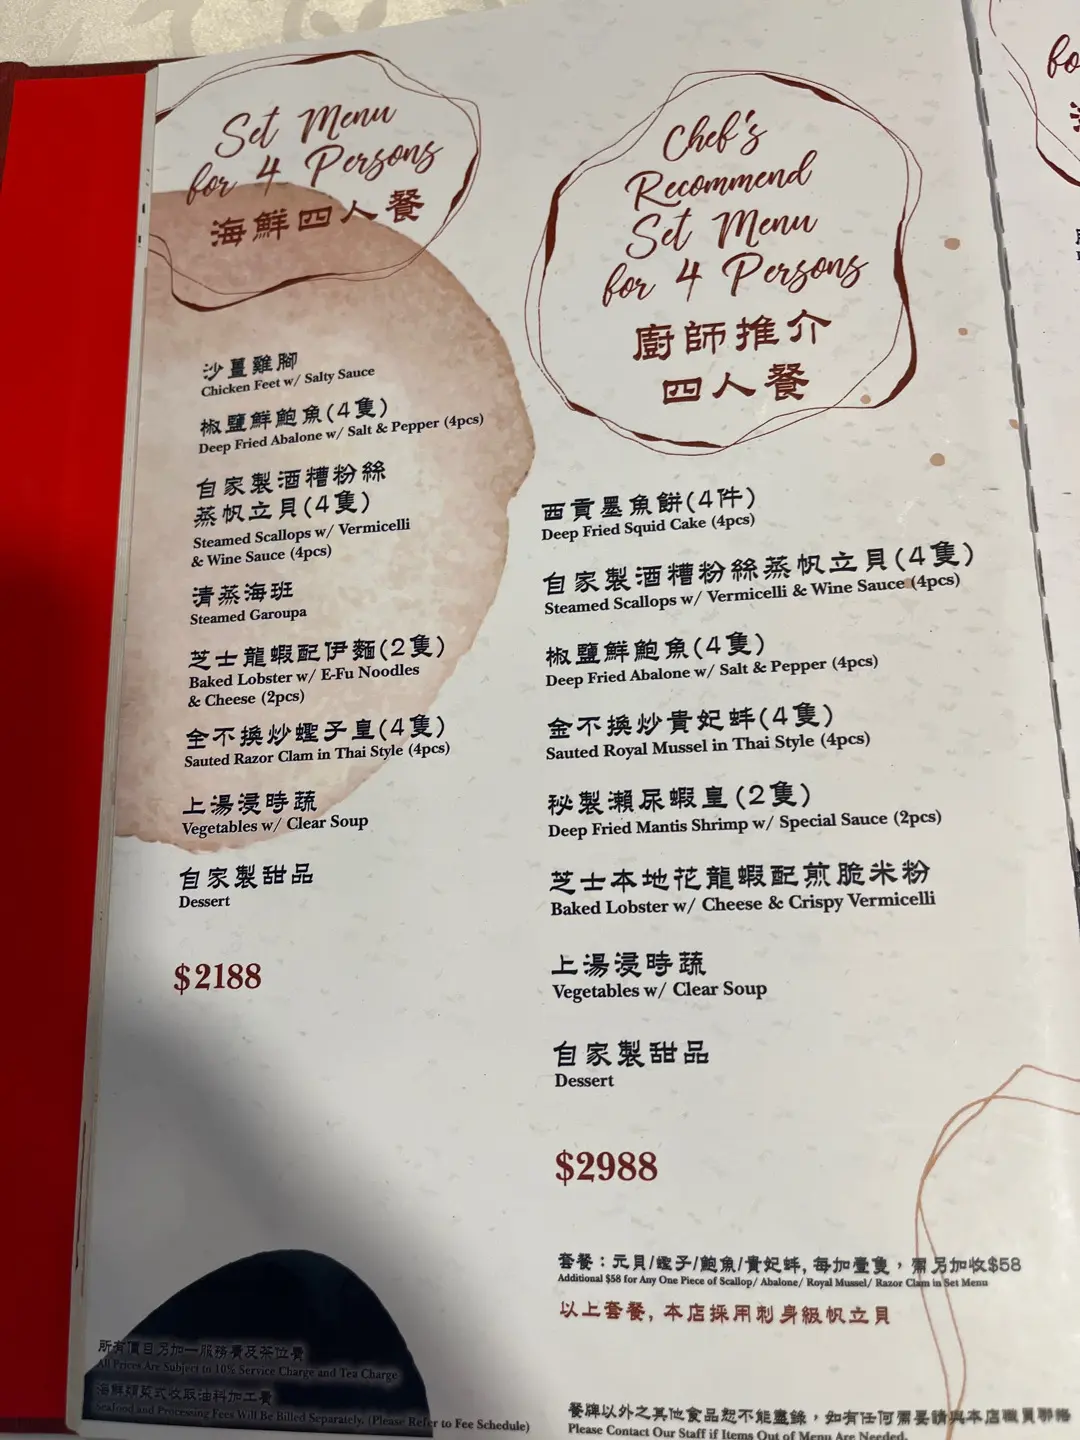 Set Menu
for 4 Persons
海鮮四人餐
沙薑雞腳
Chicken Feet w/ Salty Sauce
椒鹽鮮鮑魚(4隻)
Deep Fried Abalone w/ Salt & Pepper (4pcs)
自家製酒糟粉絲
蒸帆立貝(4隻)
Steamed Scallops w/ Vermicelli
& Wine Sauce (4pcs)
清蒸海班
Steamed Garoupa
芝士龍蝦配伊麵(2隻)
Baked Lobster w/ E-Fu Noodles
& Cheese (2pcs)
金不換炒蟶子皇(4隻)
Sauted Razor Clam in Thai Style (4pcs)
上湯浸時蔬
Vegetables w/ Clear Soup
自家製甜品
Dessert
$2188
所有價目另加一服務費及茶位費
All Prices Are Subject to 10% Service Charge and Tea Charge
海鮮類菜式收取油料加工費
Seafood and Processing Fees Will Be Billed Separately. (Please Refer to Fee Schedule)
Chef's
Recommend
Set Menu
for 4 Persons
廚師推介
四人餐
西貢墨魚餅(4件)
Deep Fried Squid Cake (4pcs)
自家製酒糟粉絲蒸帆立貝(4隻)
Steamed Scallops w/ Vermicelli & Wine Sauce (4pcs)
椒鹽鮮鮑魚(4隻)
Deep Fried Abalone w/ Salt & Pepper (4pcs)
金不換炒貴妃蚌(4隻)
Sauted Royal Mussel in Thai Style (4pcs)
秘製瀨尿蝦皇(2隻)
Deep Fried Mantis Shrimp w/ Special Sauce (2pcs)
芝士本地花龍蝦配煎脆米粉
Baked Lobster w/ Cheese & Crispy Vermicelli
上湯浸時蔬
Vegetables w/ Clear Soup
自家製甜品
Dessert
$2988
套餐：元貝/蟶子/鮑魚/貴妃蚌, 每加壹隻，需另加收$58
Additional $58 for Any One Piece of Scallop/ Abalone/ Royal Mussel/ Razor Clam in Set Menu
以上套餐, 本店採用刺身級帆立貝
餐牌以外之其他食品恕不能盡錄，如有任何需要請與本店職員聯絡
Please Contact Our Staff if Items Out of Menu Are Needed.